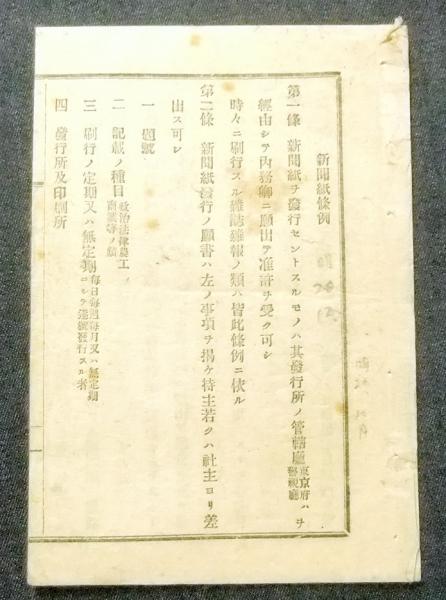 新聞紙條例
第一條 新聞紙ヲ發行セントスルモノハ其發行所ノ管轄廳東京府ハ警視廳ヲ
經由シテ内務卿ニ願出テ准許ヲ受ク可シ
時々ニ刷行スル雜誌雜報ノ類ハ皆此條例ニ依ル
第二條 新聞紙發行ノ願書ハ左ノ事項ヲ掲ケ持主若クハ社主ヨリ差
出ス可シ
一 題號
二 記載ノ種目政治法律農工商業等ノ類
三 刷行ノ定期又ハ無定期毎日毎週毎月又ハ無定期ニシテ連續發行スル者
四 發行所及印刷所